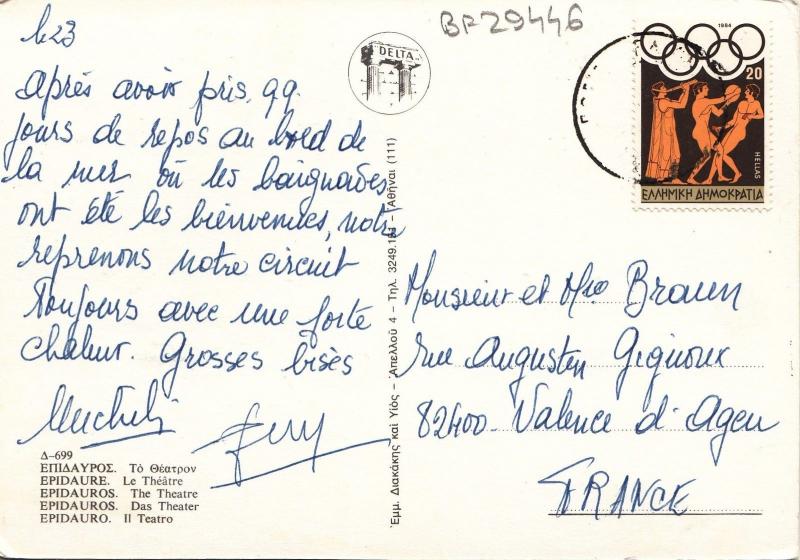 le 23
Après avoir pris qq.
jours de repos au bord de
la mer où les baignades
ont été les bienvenues, nous
reprenons notre circuit
Toujours avec une forte
chaleur. Grosses bises
Δ-699
ΕΠΙΔΑΥΡΟΣ. Τό Θέατρον
EPIDAURE. Le Théâtre
EPIDAUROS. The Theatre
EPIDAUROS. Das Theater
EPIDAURO. Il Teatro
DELTA
Εμμ. Διακάκης καί Υἱός – Ἀπελλοῦ 4 – Τηλ. 3249.181 – Ἀθῆναι (111)
BF29446
1984
20
HELLAS
ΕΛΛΗΝΙΚΗ ΔΗΜΟΚΡΑΤΙΑ
Monsieur et Mme Braun
rue Augustin Gignoux
82400 - Valence d'Agen
FRANCE